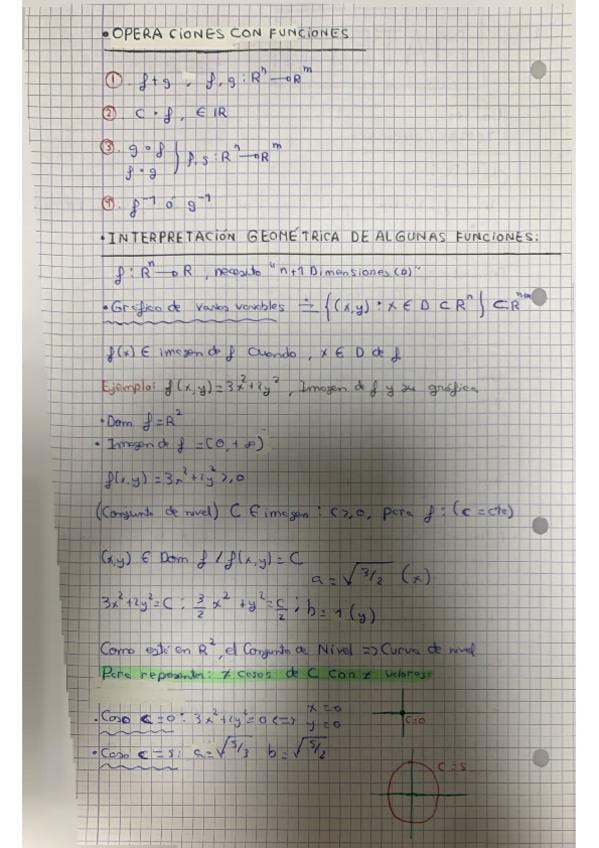 • OPERACIONES CON FUNCIONES
①. f+g , f, g : Rⁿ→Rᵐ
②. C · f , ∈ IR
③. g∘f
f∘g } f, g : Rⁿ→Rᵐ
④. f⁻¹ ó g⁻¹
• INTERPRETACIÓN GEOMÉTRICA DE ALGUNAS FUNCIONES:
f : Rⁿ→R , necesito "n+1 Dimensiones (D)"
• Gráfica de varias variables ≐ {(x,y) : x ∈ D ⊂ Rⁿ} ⊂ Rⁿ⁺ᵐ
f(x) ∈ imagen de f cuando , x ∈ D de f.
Ejemplo: f(x,y)=3x²+2y² , Imagen de f y su gráfica
• Dom f = R²
• Imagen de f = (0, + ∞)
f(x,y) = 3x²+2y² ≥ 0
(Conjunto de nivel) C ∈ imagen : C≥0, para f : (c = cte)
(x,y) ∈ Dom f / f(x,y) = C
a = √3/2 (x)
3x²+2y²=C ; 3/2 x² + y² = C/2 ; b = 1 (y)
Como está en R², el Conjunto de Nivel => Curva de nivel
Para representar: ≠ casos de C con ≠ valores:
• Caso c = 0 : 3x²+2y²=0 <=> x=0
y=0
C=0
• Caso c = 5: a=√5/3 b=√5/2
C=5